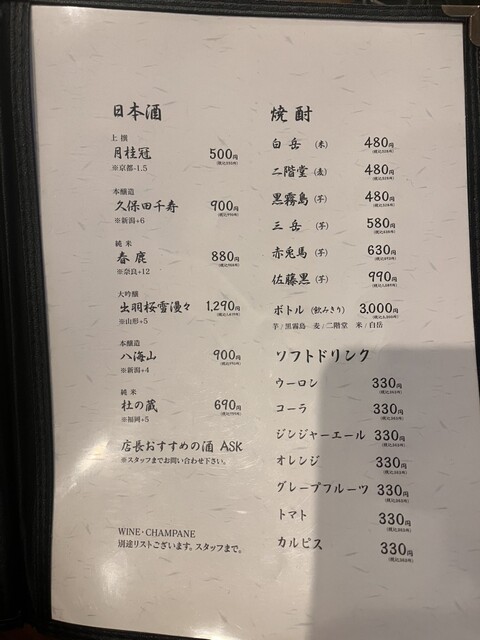 日本酒
上撰
月桂冠 500円
(税込550円)
※京都-1.5
本醸造
久保田千寿 900円
(税込990円)
※新潟+6
純米
春鹿 880円
(税込968円)
※奈良+12
大吟醸
出羽桜雪漫々 1,290円
(税込1,419円)
※山形+5
本醸造
八海山 900円
(税込990円)
※新潟+4
純米
杜の蔵 690円
(税込759円)
※福岡+5
店長おすすめの酒 ASK
※スタッフまでお問い合わせ下さい。
WINE・CHAMPANE
別途リストございます。スタッフまで。
焼酎
白岳 (米) 480円
(税込528円)
二階堂 (麦) 480円
(税込528円)
黒霧島 (芋) 480円
(税込528円)
三岳 (芋) 580円
(税込638円)
赤兎馬 (芋) 630円
(税込693円)
佐藤黒 (芋) 990円
(税込1,089円)
ボトル (飲みきり) 3,000円
(税込3,300円)
芋/黒霧島 麦/二階堂 米/白岳
ソフトドリンク
ウーロン 330円
(税込363円)
コーラ 330円
(税込363円)
ジンジャーエール 330円
(税込363円)
オレンジ 330円
(税込363円)
グレープフルーツ 330円
(税込363円)
トマト 330円
(税込363円)
カルピス 330円
(税込363円)